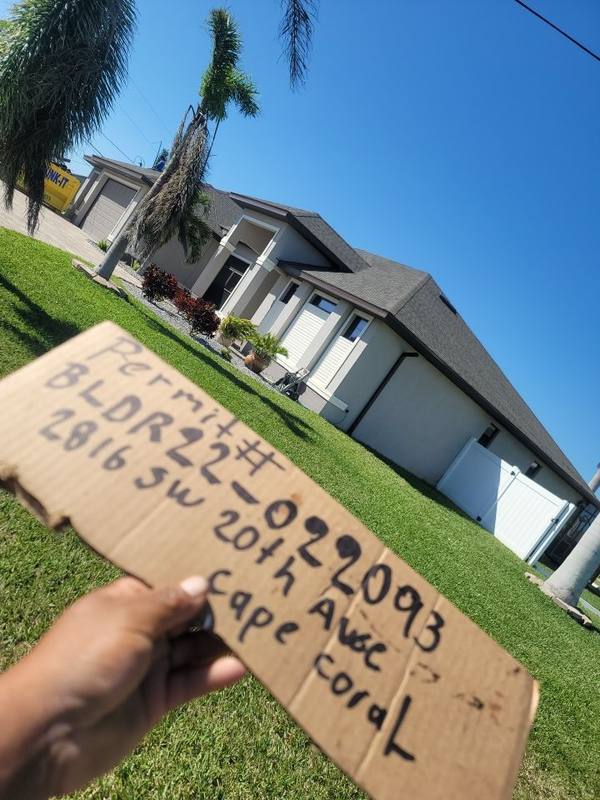 UNK-IT
Permit#
BLDR22-022093
2816 SW 20th Ave
Cape coral